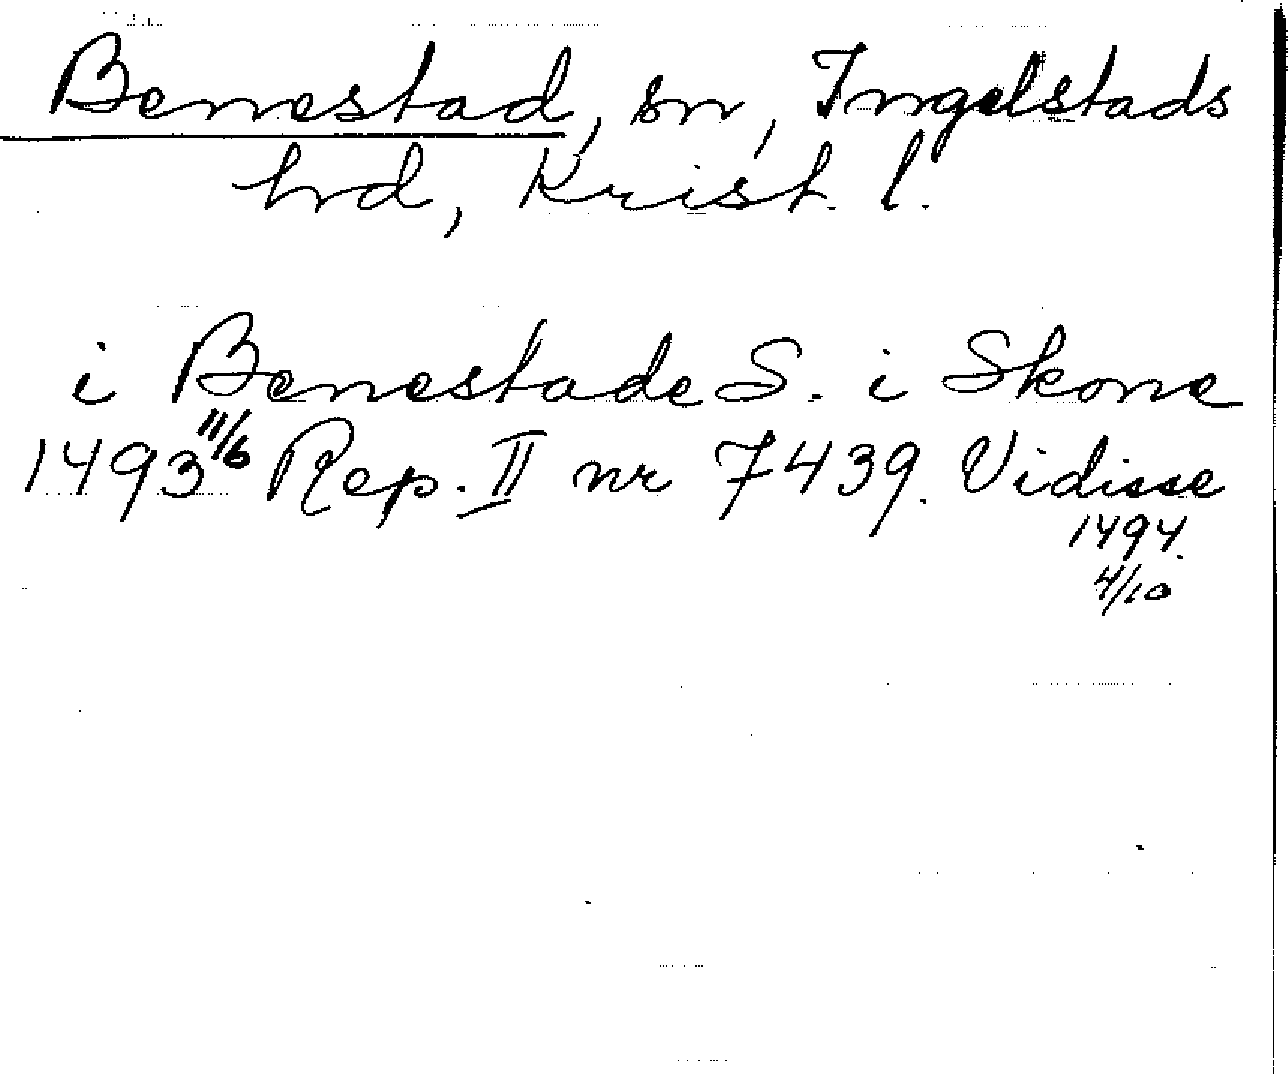 Benestad, sn, Ingelstads
hrd, Krist. l.
i Benestade S. i Skone
1493 11/6 Rep. II nr 7439. Vidisse
1494.
4/10